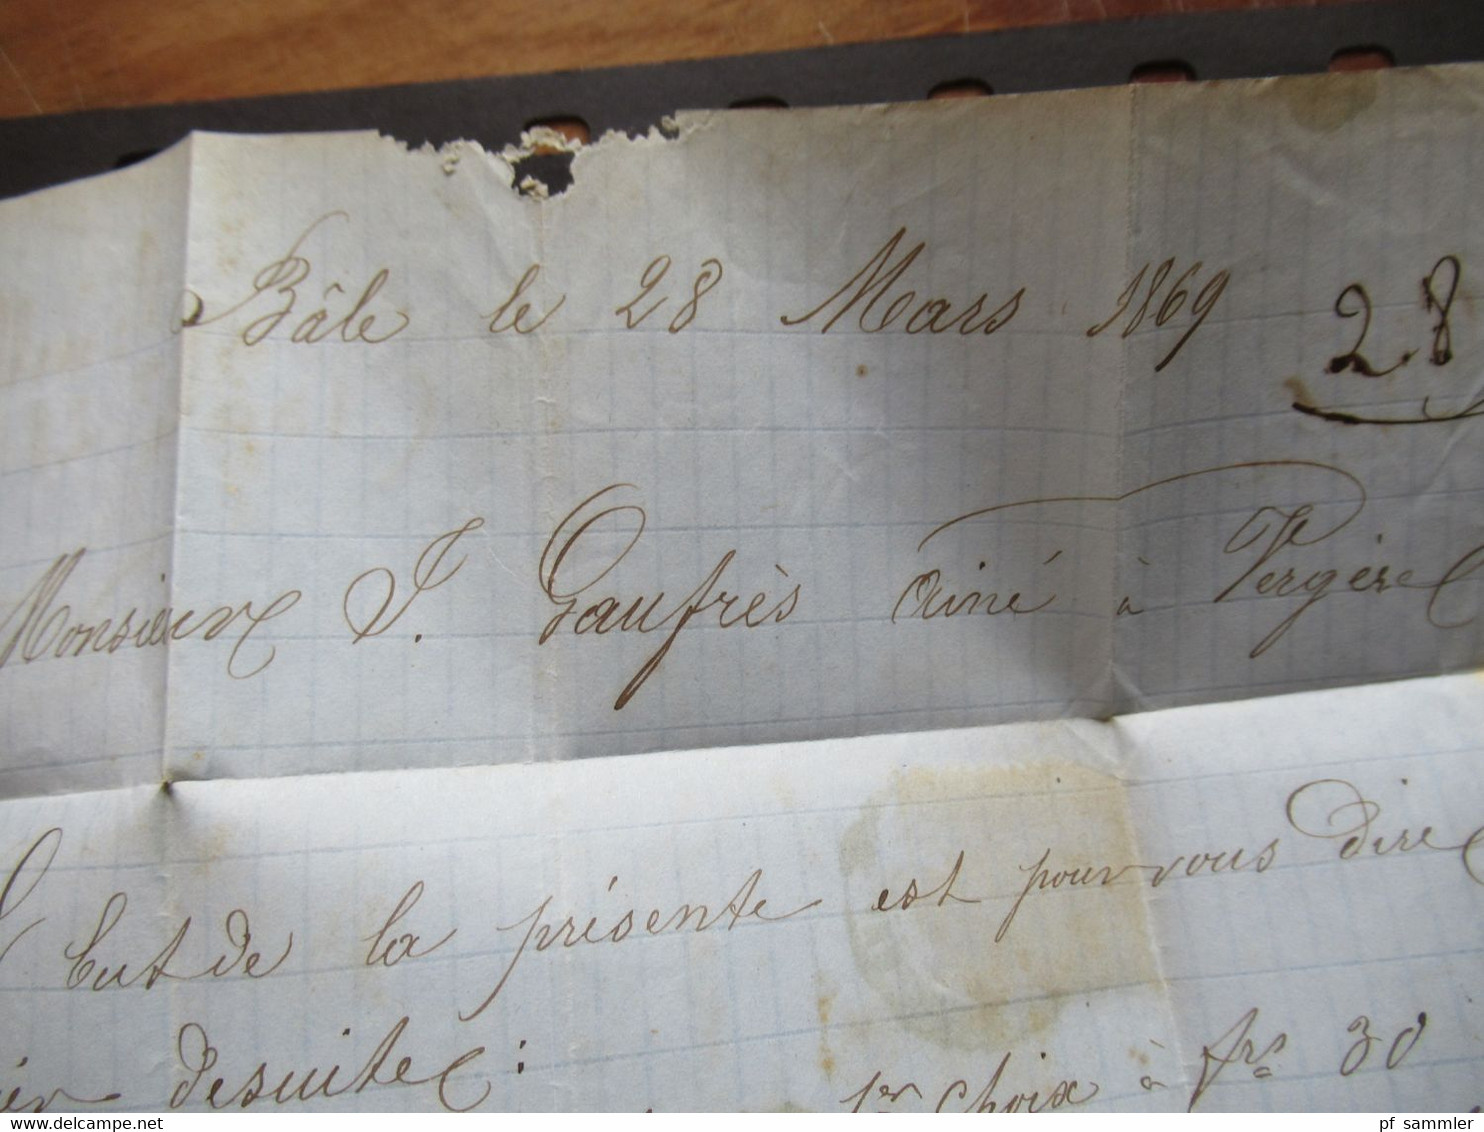 Bâle le 28 Mars 1869
28
Monsieur J. Gaufrès Ainé à Vergèze
but de la présente est pour vous dire
desuite :
1er choix à frs 30
delcampe.net
pf_sammler